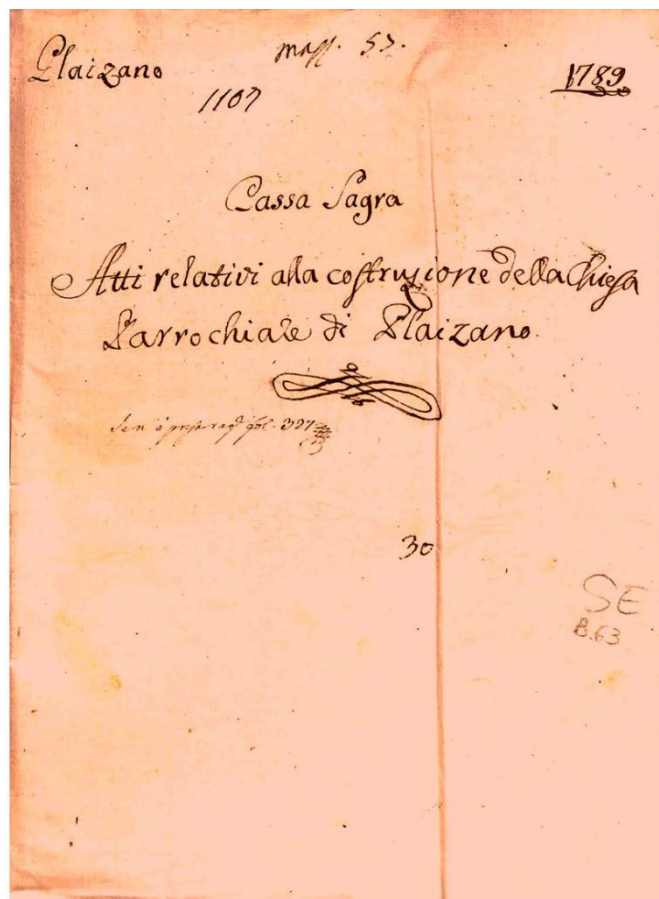 Plaizano
mass. 53.
1789
1107
Cassa Sagra
Atti relativi alla costruzione della Chiesa
Parrochiale di Plaizano
fol. 397
30
SE
B.63